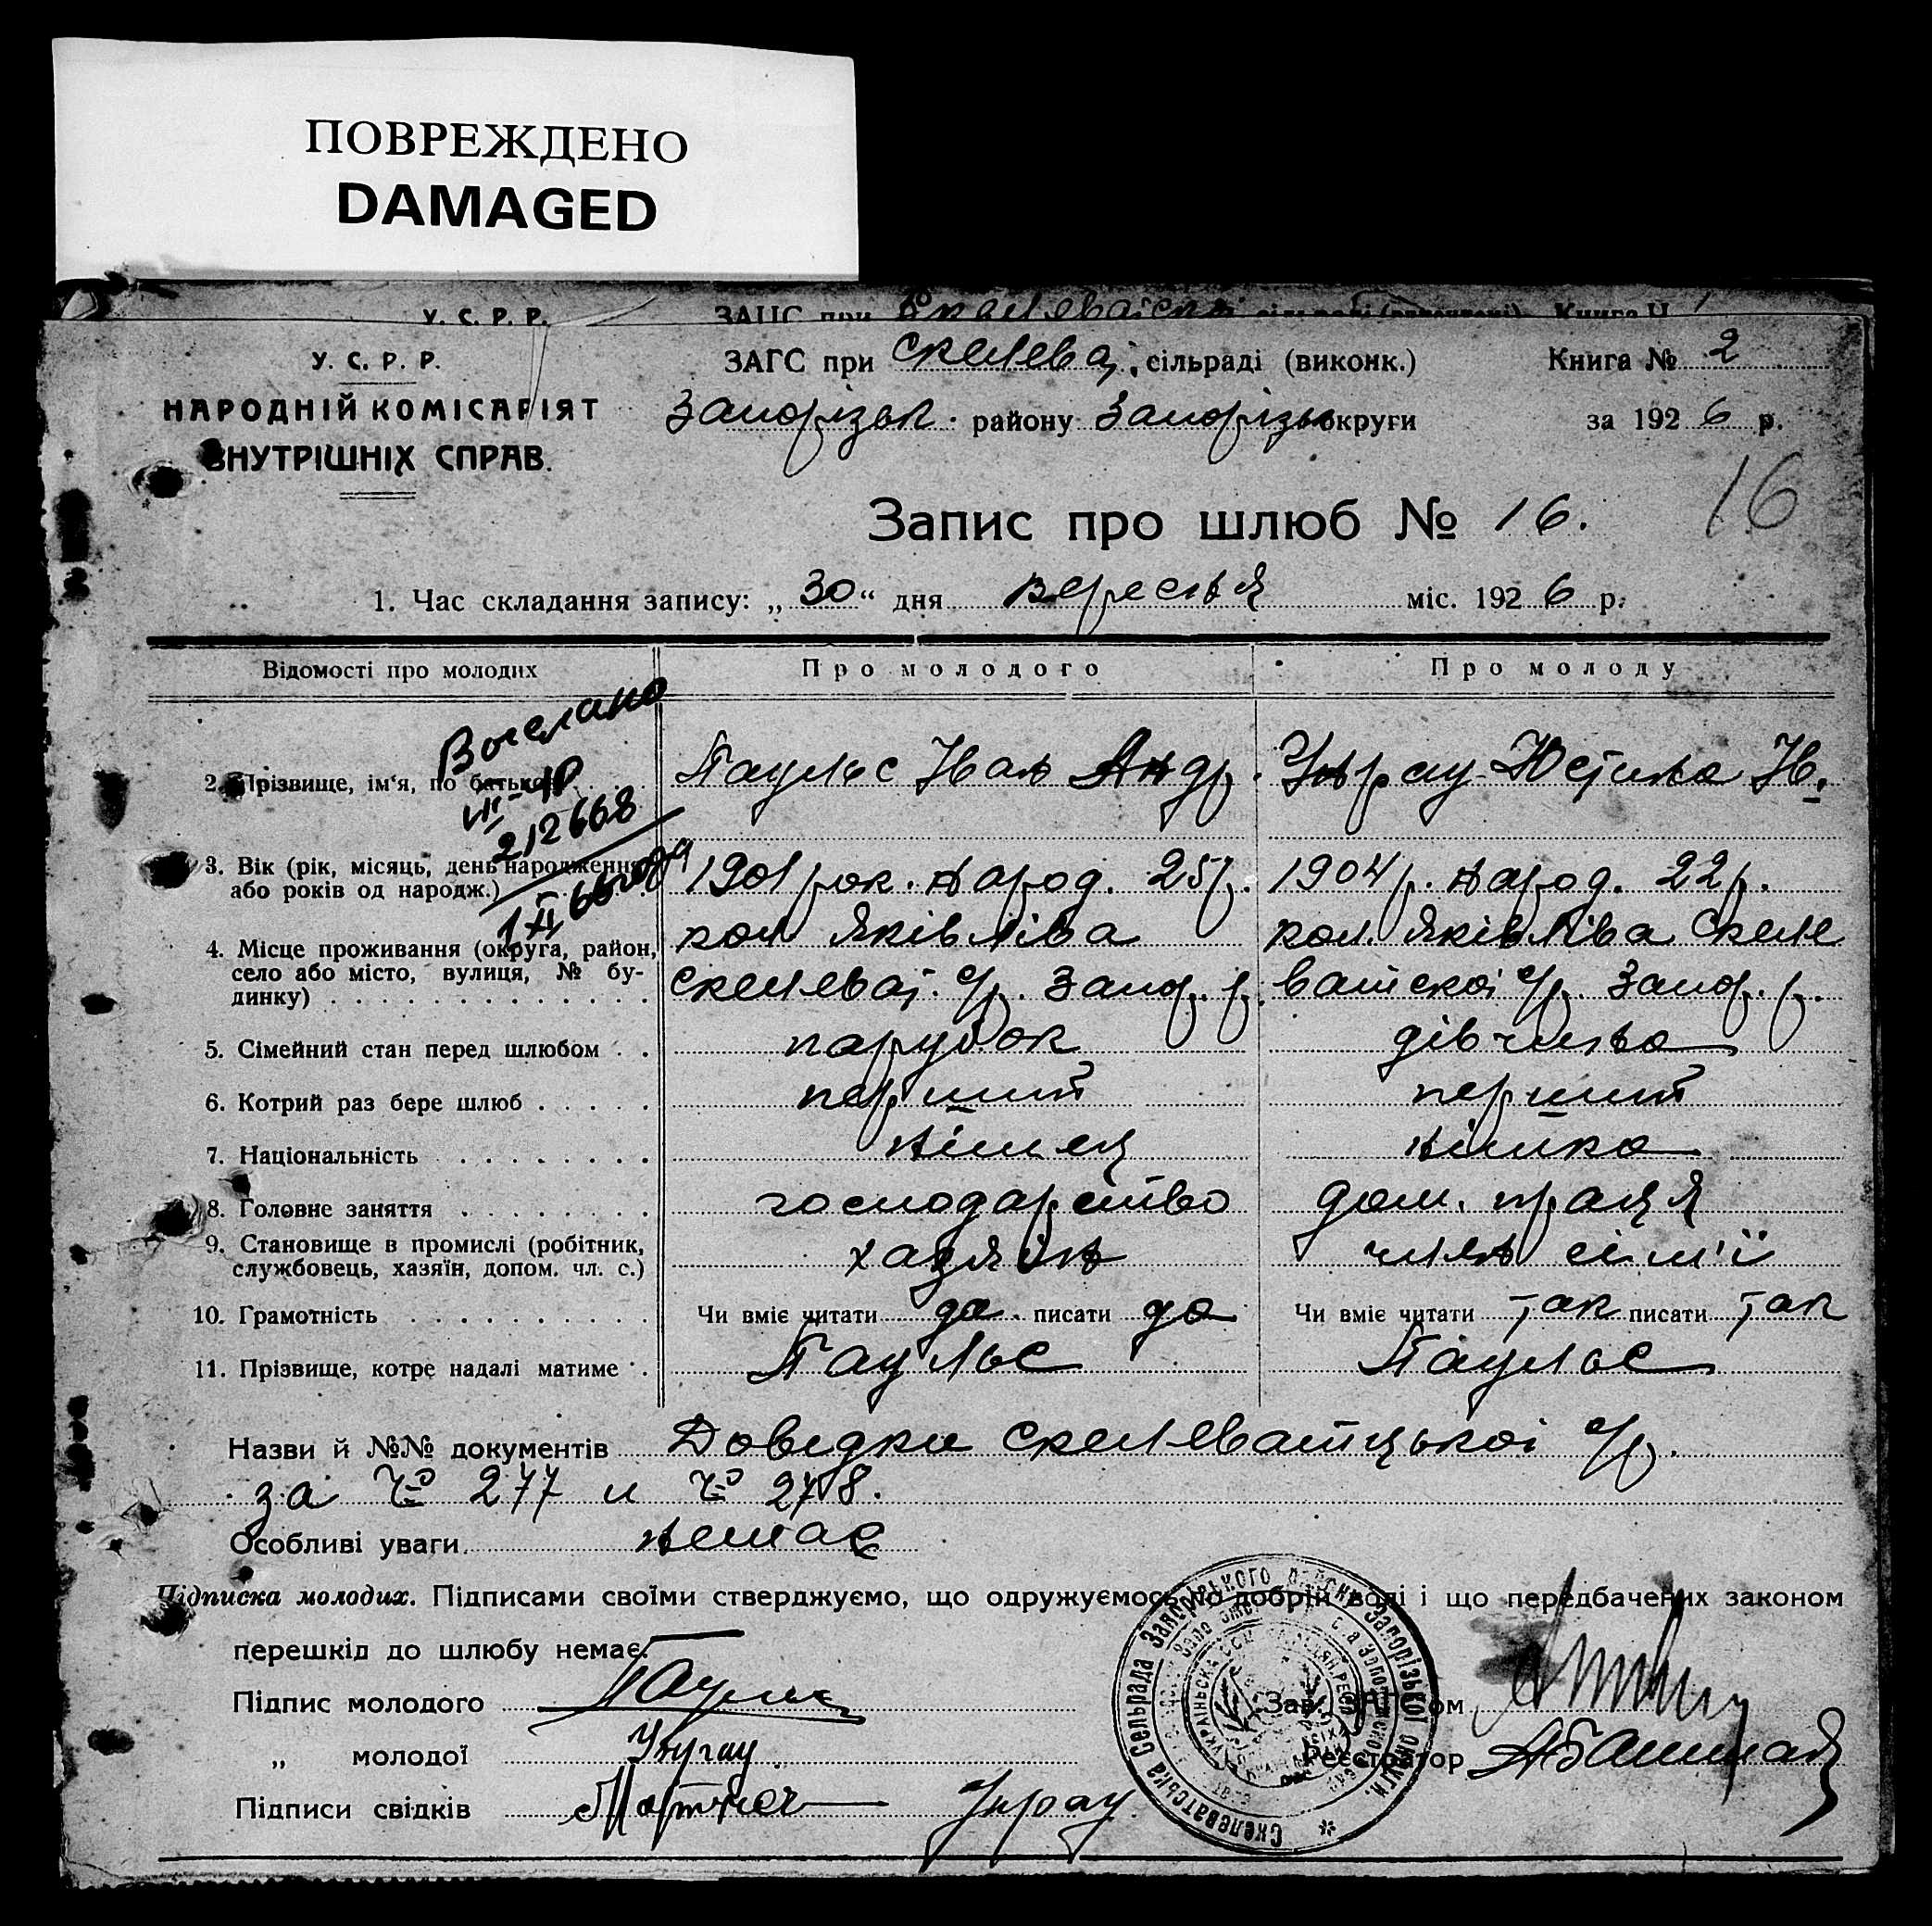 ПОВРЕЖДЕНО
DAMAGED
У. С. Р. Р.
У. С. Р. Р.
НАРОДНІЙ КОМІСАРІЯТ
ВНУТРІШНІХ СПРАВ.
ЗАГС при Скелева, сільраді (виконк.) Книга № 2
Запорізьк. району Запорізьк округи за 1926 р.
16
Запис про шлюб № 16.
1. Час складання запису: „30“ дня вересня міс. 1926 р.
Відомості про молодих Про молодого Про молоду
Выслано
212668
2. Прізвище, ім'я, по батькові Паульс Іван Андр. Унрау Юстина Ів.
3. Вік (рік, місяць, день народження або років од народж.) 1901 рок. народ. 25 р. 1904 р. народ. 22 р.
4. Місце проживання (округа, район, село або місто, вулиця, № будинку) кол Яківлівa Скелеваț. с/р. Запор. р. кол. Яківліва Скелеватскої с/р. Запор. р.
5. Сімейний стан перед шлюбом парубок дівчина
6. Котрий раз бере шлюб перший перший
7. Національність німец німка
8. Головне заняття господарство дом. праця
9. Становище в промислі (робітник, службовець, хазяїн, допом. чл. с.) хазяїн член сім'ї
10. Грамотність Чи вміє читати да. писати да Чи вміє читати так писати так
11. Прізвище, котре надалі матиме Паульс Паульс
Назви й №№ документів Довідки Скелеватської с/р.
за Ч° 277 и Ч° 278.
Особливі уваги немає
Підписка молодих. Підписами своїми стверджуємо, що одружуємось по добрій волі і що передбачених законом
перешкід до шлюбу немає.
Підпис молодого Паульс
„ молодої Унрау
Підписи свідків Мартенс Унрау
Зав. ЗАГС'ом
Реєстратор
Скелеватська Сельрада Запорізького району Запорізької округи.